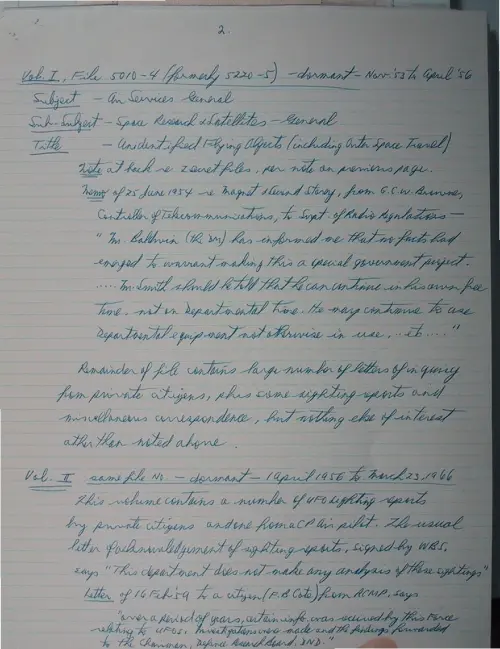 2.
Vol. I, File 5010-4 (formerly 5220-5) - dormant - Nov '53 to April '56
Subject - Air Services General
Sub-Subject - Space Research & Satellites - General
Title - Unidentified Flying Objects (including Outer Space Travel)
Note at back re 2 secret files, per note on previous page.
Memo of 25 June 1954 re Magnet & Grand Story, from G.C.W. Browne,
Controller of Telecommunications, to Supt. of Radio Regulations -
"Mr. Baldwin (the DM) has informed me that no facts had
emerged to warrant making this a special government project.
..... Mr. Smith should be told that he can continue in his own free
time - not on Departmental time. He may continue to use
Departmental equipment not otherwise in use, .. etc ...."
Remainder of file contains large number of letters of inquiry
from private citizens, plus some sighting reports and
miscellaneous correspondence, but nothing else of interest
other than noted above.
Vol. II same file No. - dormant - 1 April 1956 to March 23, 1966
This volume contains a number of UFO sighting reports
by private citizens and one from a CP Air pilot. The usual
letter of acknowledgement of sighting reports, signed by WBS,
says "This department does not make any analysis of these sightings"
Letter of 16 Feb '59 to a citizen (F.B. Cote) from RCMP, says
"over a period of years, certain info. was secured by this Force
relating to UFOs. Investigations were made and the findings forwarded
to the Chairman, Defence Research Board, DND."